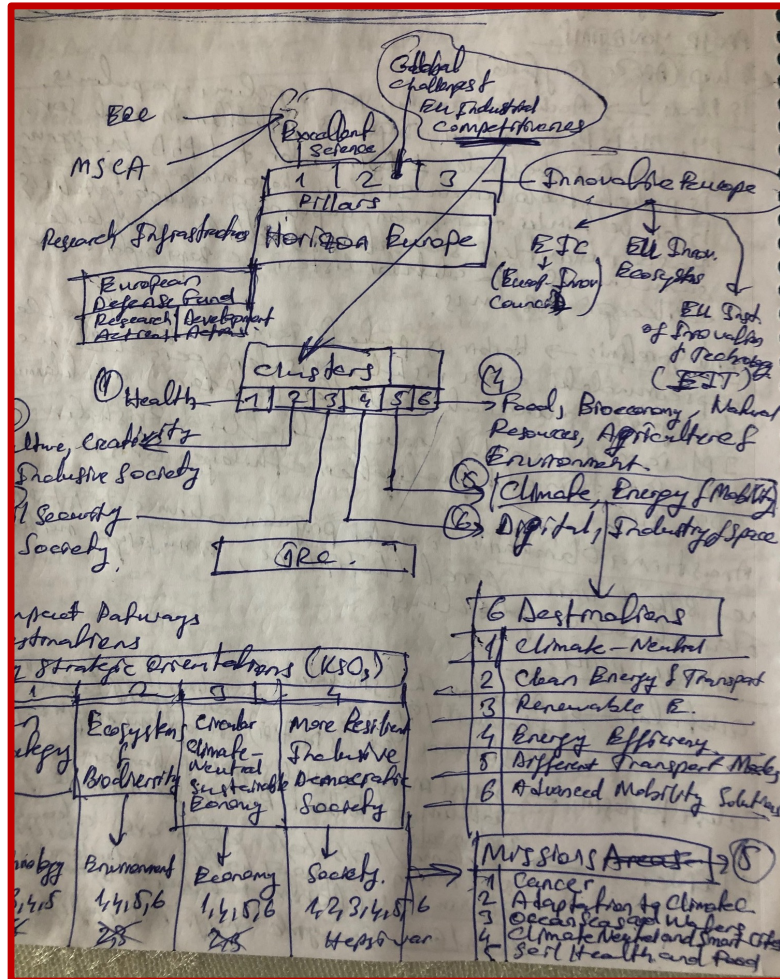 Global
Challenges &
EU Industrial
Competitiveness
ERC
Excellent
Science
MSCA
1 2 3
Innovative Europe
Pillars
Research Infrastructures
Horizon Europe
EIC
(Europ. Innov.
Council)
EU Innov.
Ecosystems
EU Inst.
of Innovation
& Technology
(EIT)
European
Defense Fund
Research Development
Actions Actions
Clusters
1 Health
1 2 3 4 5 6
4
Food, Bioeconomy, Natural
Resources, Agriculture &
Environment.
lture, Creativity
Inclusive Society
5 Climate, Energy & Mobility
l Security
Society.
6 Digital, Industry & Space
JRC.
mpact Pathways
stinations
Strategic Orientations (KSOs)
1 2 3 4
Ecosystem
Biodiversity
Circular
Climate-
Neutral
Sustainable
Economy
More Resilient
Inclusive
Democratic
Society
Environment
1,4,5,6
2,3
Economy
1,4,5,6
2,3
Society.
1,2,3,4,5,6
Hepsi var.
nology
3,4,5
6 Destinations
1 Climate-Neutral
2 Clean Energy & Transport
3 Renewable E.
4 Energy Efficiency
5 Different Transport Modes
6 Advanced Mobility Solutions
Missions Areas 5
1 Cancer
2 Adaptation to Climate C
3 Ocean seas and Waters
4 Climate Neutral and Smart Cities
5 Soil Health and Food